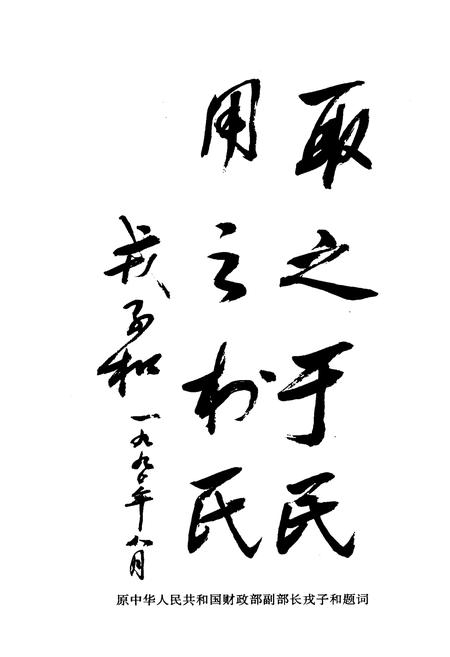 取之于民
用之於民
戎子和 一九九〇年八月
原中华人民共和国财政部副部长戎子和题词